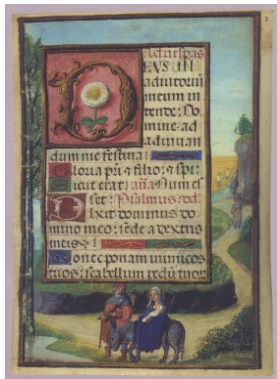 Ad vespas
EUS in
adiutoriū
meum in
tende: Do
mine ad
adiuuan
dum me festina:
Gloria pr̄i et filio: et spi
ritui: aña
set: Psalmus
Dixit dominus do
mino meo: sede a dextris
meis
Donec ponam inimicos
tuos: scabellum pedū tuor